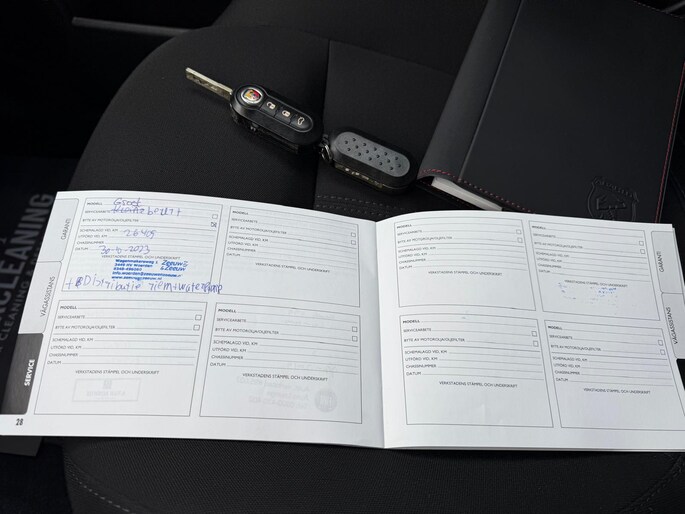 CLEANING
GARANS
VÄGASSISTANS
SERVICE
28
MODELL Groot
SERVICEARBETE
BYTE AV MOTOROLJA/OLJEFILTER
SCHEMALAGD VID, KM 26405
UTFÖRD VID, KM
CHASSINUMMER
DATUM 30-10-2023
VERKSTADENS STÄMPEL OCH UNDERSKRIFT
Zeeuw
&Zeeuw
+ Distributie riem+waterpomp
MODELL
SERVICEARBETE
BYTE AV MOTOROLJA/OLJEFILTER
SCHEMALAGD VID, KM
UTFÖRD VID, KM
CHASSINUMMER
DATUM
VERKSTADENS STÄMPEL OCH UNDERSKRIFT
MODELL
SERVICEARBETE
BYTE AV MOTOROLJA/OLJEFILTER
SCHEMALAGD VID, KM
UTFÖRD VID, KM
CHASSINUMMER
DATUM
VERKSTADENS STÄMPEL OCH UNDERSKRIFT
MODELL
SERVICEARBETE
BYTE AV MOTOROLJA/OLJEFILTER
SCHEMALAGD VID, KM
UTFÖRD VID, KM
CHASSINUMMER
DATUM
VERKSTADENS STÄMPEL OCH UNDERSKRIFT
MODELL
SERVICEARBETE
BYTE AV MOTOROLJA/OLJEFILTER
SCHEMALAGD VID, KM
UTFÖRD VID, KM
CHASSINUMMER
DATUM
VERKSTADENS STÄMPEL OCH UNDERSKRIFT
MODELL
SERVICEARBETE
BYTE AV MOTOROLJA/OLJEFILTER
SCHEMALAGD VID, KM
UTFÖRD VID, KM
CHASSINUMMER
DATUM
VERKSTADENS STÄMPEL OCH UNDERSKRIFT
MODELL
SERVICEARBETE
BYTE AV MOTOROLJA/OLJEFILTER
SCHEMALAGD VID, KM
UTFÖRD VID, KM
CHASSINUMMER
DATUM
VERKSTADENS STÄMPEL OCH UNDERSKRIFT
MODELL
SERVICEARBETE
BYTE AV MOTOROLJA/OLJEFILTER
SCHEMALAGD VID, KM
UTFÖRD VID, KM
CHASSINUMMER
DATUM
VERKSTADENS STÄMPEL OCH UNDERSKRIFT
GARANS
VÄGASSISTANS
SERVICE